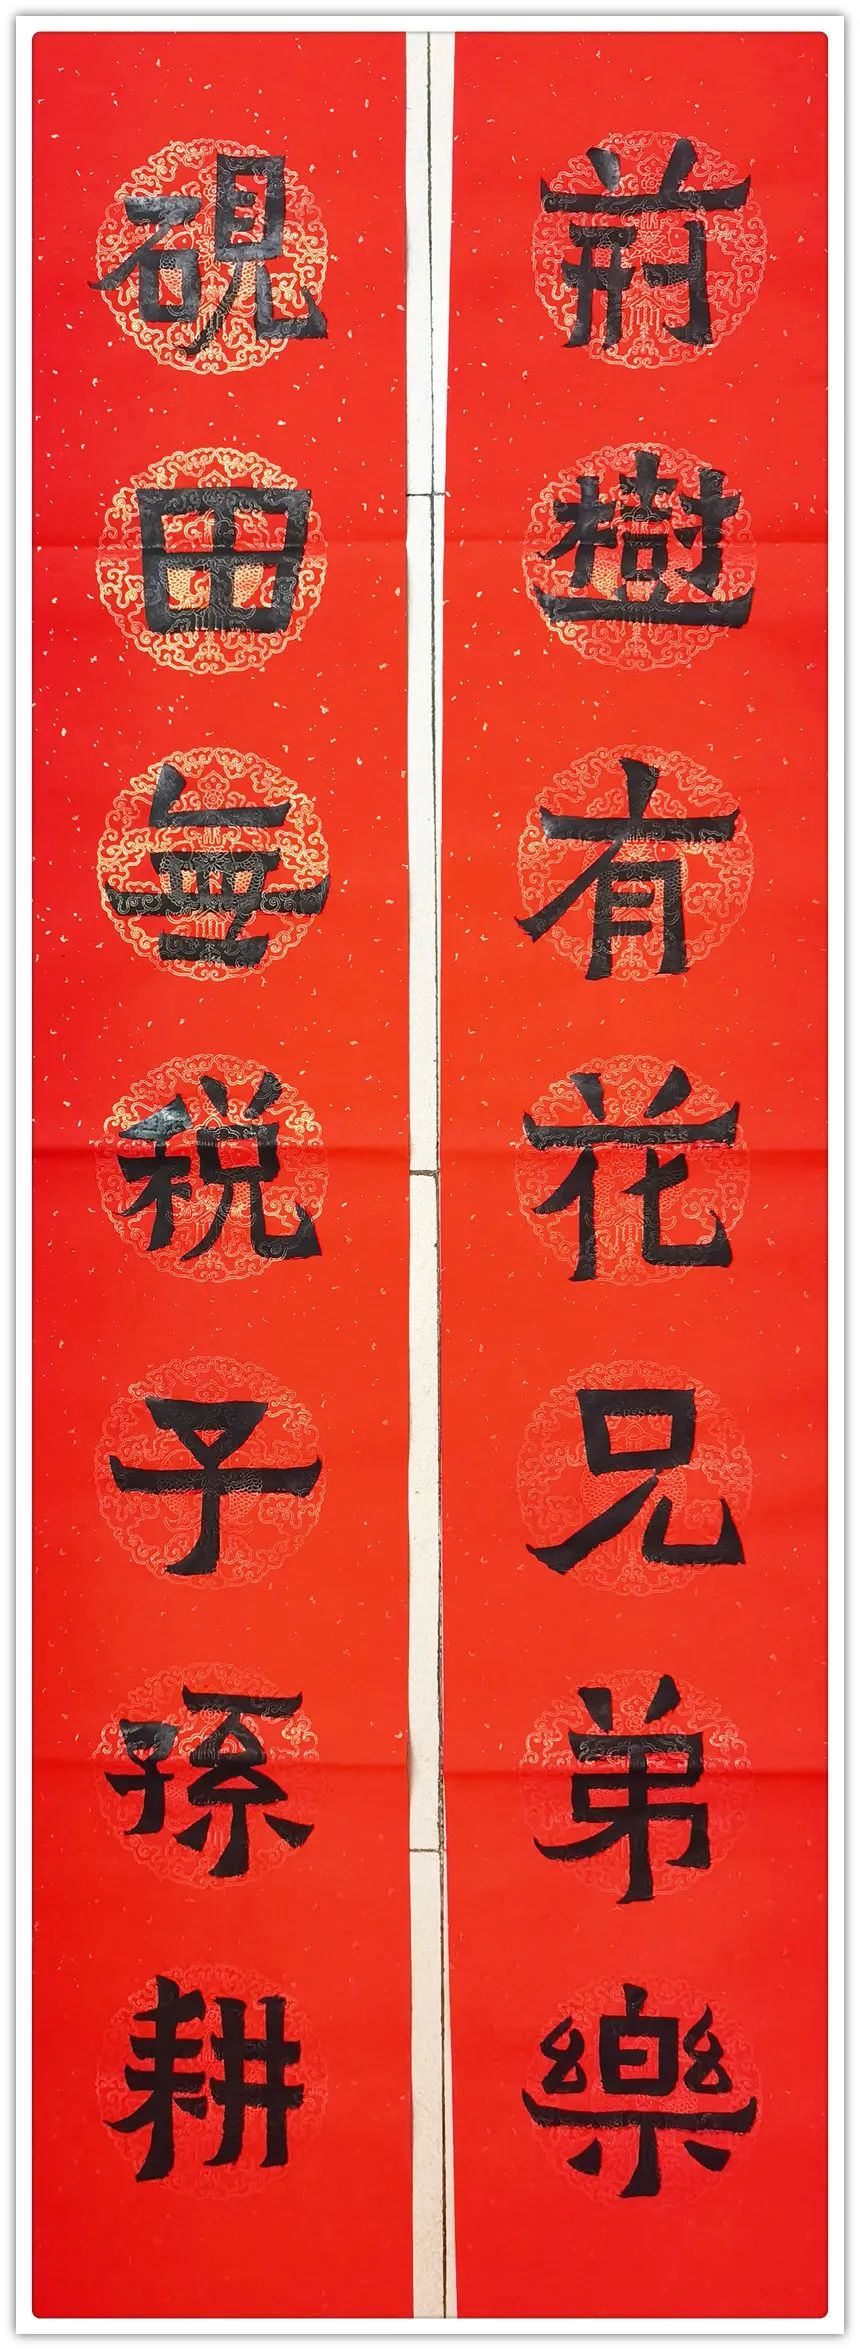 荊樹有花兄弟樂
硯田無税子孫耕